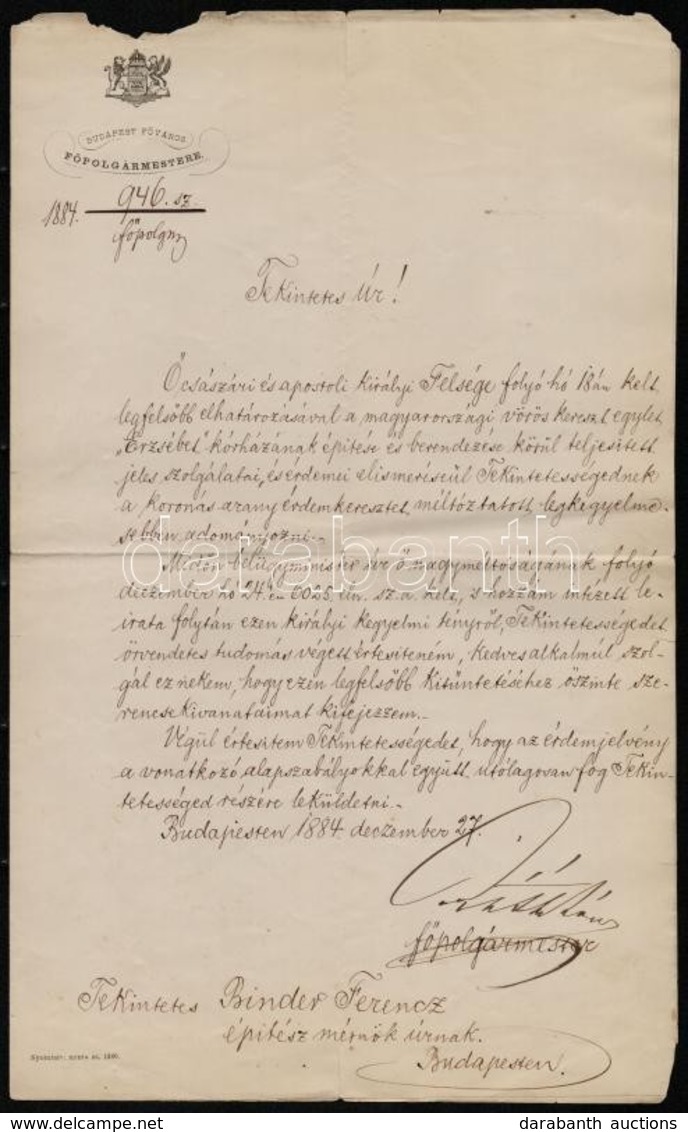 BUDAPEST FŐVÁROS
FŐPOLGÁRMESTERE.
1884. 946. sz.
főpolgm
Tekintetes Úr!
Ő császári és apostoli királyi Felsége folyó hó 18án kelt
legfelsőbb elhatározásával a magyarországi vörös kereszt egylet
„Erzsébet" kórházának épitése és berendezése körül teljesitett
jeles szolgálatai, és érdemei elismeréseül Tekintetességednek
a koronás arany érdemkeresztet méltóztatott legkegyelme-
sebben adományozni.-
Midőn belügyminister úr ő nagyméltóságának folyó
deczember hó 24én 6025 eln. sz. a. kelt, s hozzám intézett le-
irata folytán ezen királyi kegyelmi tényről, Tekintetességedet
örvendetes tudomás végett értesiteném, kedves alkalmúl szol-
gál ez nekem, hogy ezen legfelsőbb kitüntetéséhez őszinte sze-
rencsekivanataimat kifejezzem.-
Végül értesitem Tekintetességedet, hogy az érdemjelvény
a vonatkozó alapszabályokkal együtt utólagosan fog Tekin-
tetességed részére leküldetni.-
Budapesten 1884 deczember 27.
főpolgármester
Tekintetes Binder Ferencz
épitész mérnök úrnak.
Budapesten.
darabanth
darabanth auctions